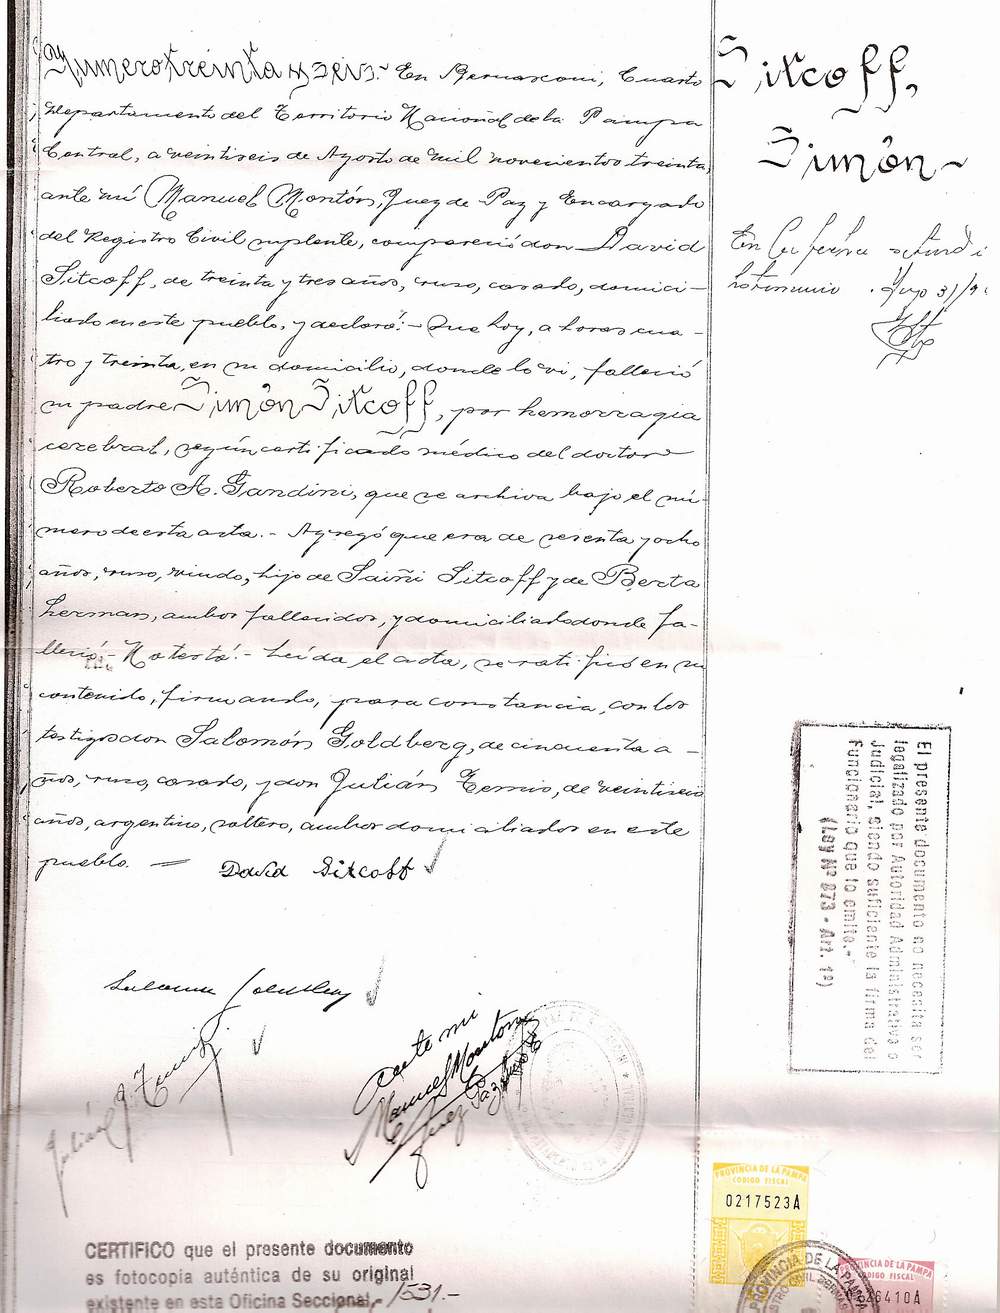 Numero treinta y seis.- En Bernasconi, Cuarto
Departamento del Territorio Nacional de la Pampa
Central, a veintiseis de Agosto de mil novecientos treinta,
ante mí Manuel Montón, Juez de Paz y Encargado
del Registro Civil suplente, compareció don David
Sitcoff, de treinta y tres años, ruso, casado, domici-
liado en este pueblo, y declaró:- Que hoy, a horas cua-
tro y treinta, en su domicilio, donde lo vi, falleció
su padre Simón Sitcoff, por hemorragia
cerebral, según certificado médico del doctor
Roberto A. Gandini, que se archiva bajo el nú-
mero de esta acta.- Agregó que era de sesenta y ocho
años, ruso, viudo, hijo de Saiñi Sitcoff y de Berta
herman, ambos fallecidos, y domiciliado donde fa-
lleció.- No testó.- Leída el acta, se ratificó en su
contenido, firmando, para constancia, con los
testigos don Salomón Goldberg, de cincuenta a-
ños, ruso, casado, y don Julián, de veintiseis
años, argentino, soltero, ambos domiciliados en este
pueblo. — David Sitcoff
Julián J.
Ante mi
Manuel Montón
Juez Paz
Sitcoff,
Simón
En
testimonio . 31/
El presente documento no necesita ser
legalizado por Autoridad Administrativa o
Judicial, siendo suficiente la firma del
Funcionario que lo emite.-
(Ley Nº 873 - Art. 1º)
PROVINCIA DE LA PAMPA
CODIGO FISCAL
0217523A
PROVINCIA DE LA PAMPA
PROVINCIA DE LA PAMPA
CODIGO FISCAL
26410A
CERTIFICO que el presente documento
es fotocopia auténtica de su original
existente en esta Oficina Seccional.- 531.-